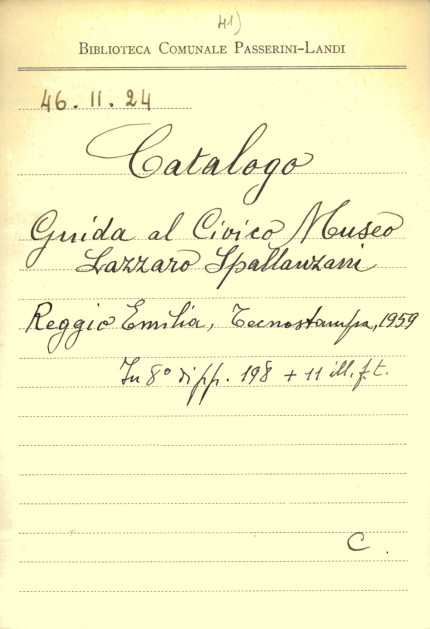 41)
BIBLIOTECA COMUNALE PASSERINI-LANDI
46.11.24
Catalogo
Guida al Civico Museo
Lazzaro Spallanzani
Reggio Emilia, Tecnostampa, 1959
In 8° di pp. 198 + 11 ill. f. t.
C.